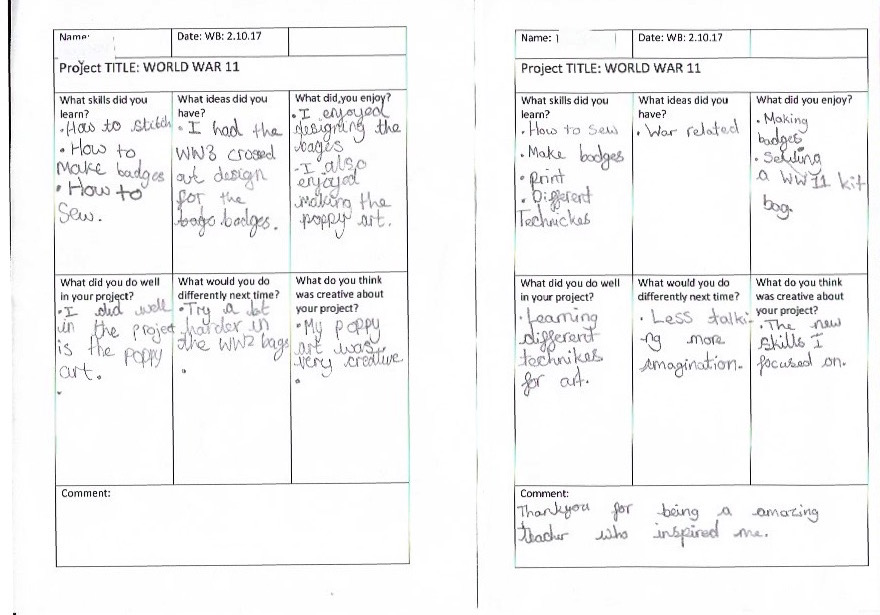 Name:
Date: WB: 2.10.17
Project TITLE: WORLD WAR 11
What skills did you
learn?
• How to stitch
• How to
Make badges
• How to
Sew.
What ideas did you
have?
• I had the
WW3 crosed
out design
for the
bags badges.
What did you enjoy?
• I enjoyed
designing the
bages
- I also
enjoyed
making the
poppy art.
What did you do well
in your project?
• I did well
in the project
is the poppy
art.
What would you do
differently next time?
• Try a bit
harder in
the WW2 bags
What do you think
was creative about
your project?
• My poppy
art was
very creative
Comment:
Name:
Date: WB: 2.10.17
Project TITLE: WORLD WAR 11
What skills did you
learn?
• How to sew
• Make badges
• print
• Different
Technickes
What ideas did you
have?
• War related
What did you enjoy?
• Making
badges
• Sewing
a WW11 kit
bag.
What did you do well
in your project?
• Learning
different
technikes
for art.
What would you do
differently next time?
• Less talki-
ng more
imagination.
What do you think
was creative about
your project?
• The new
skills I
focused on.
Comment:
Thankyou for being a amazing
teacher who inspired me.